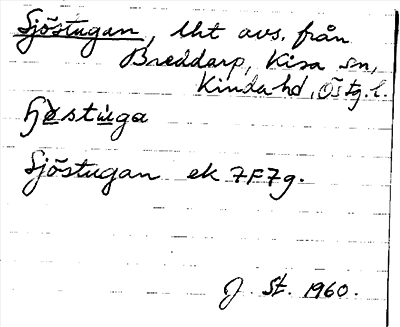 Sjöstugan, lht avs. från
Breddarp, Kisa sn,
Kinda hd, Östg. l.
Sjöstugan ek 7F7g.
J. St. 1960.